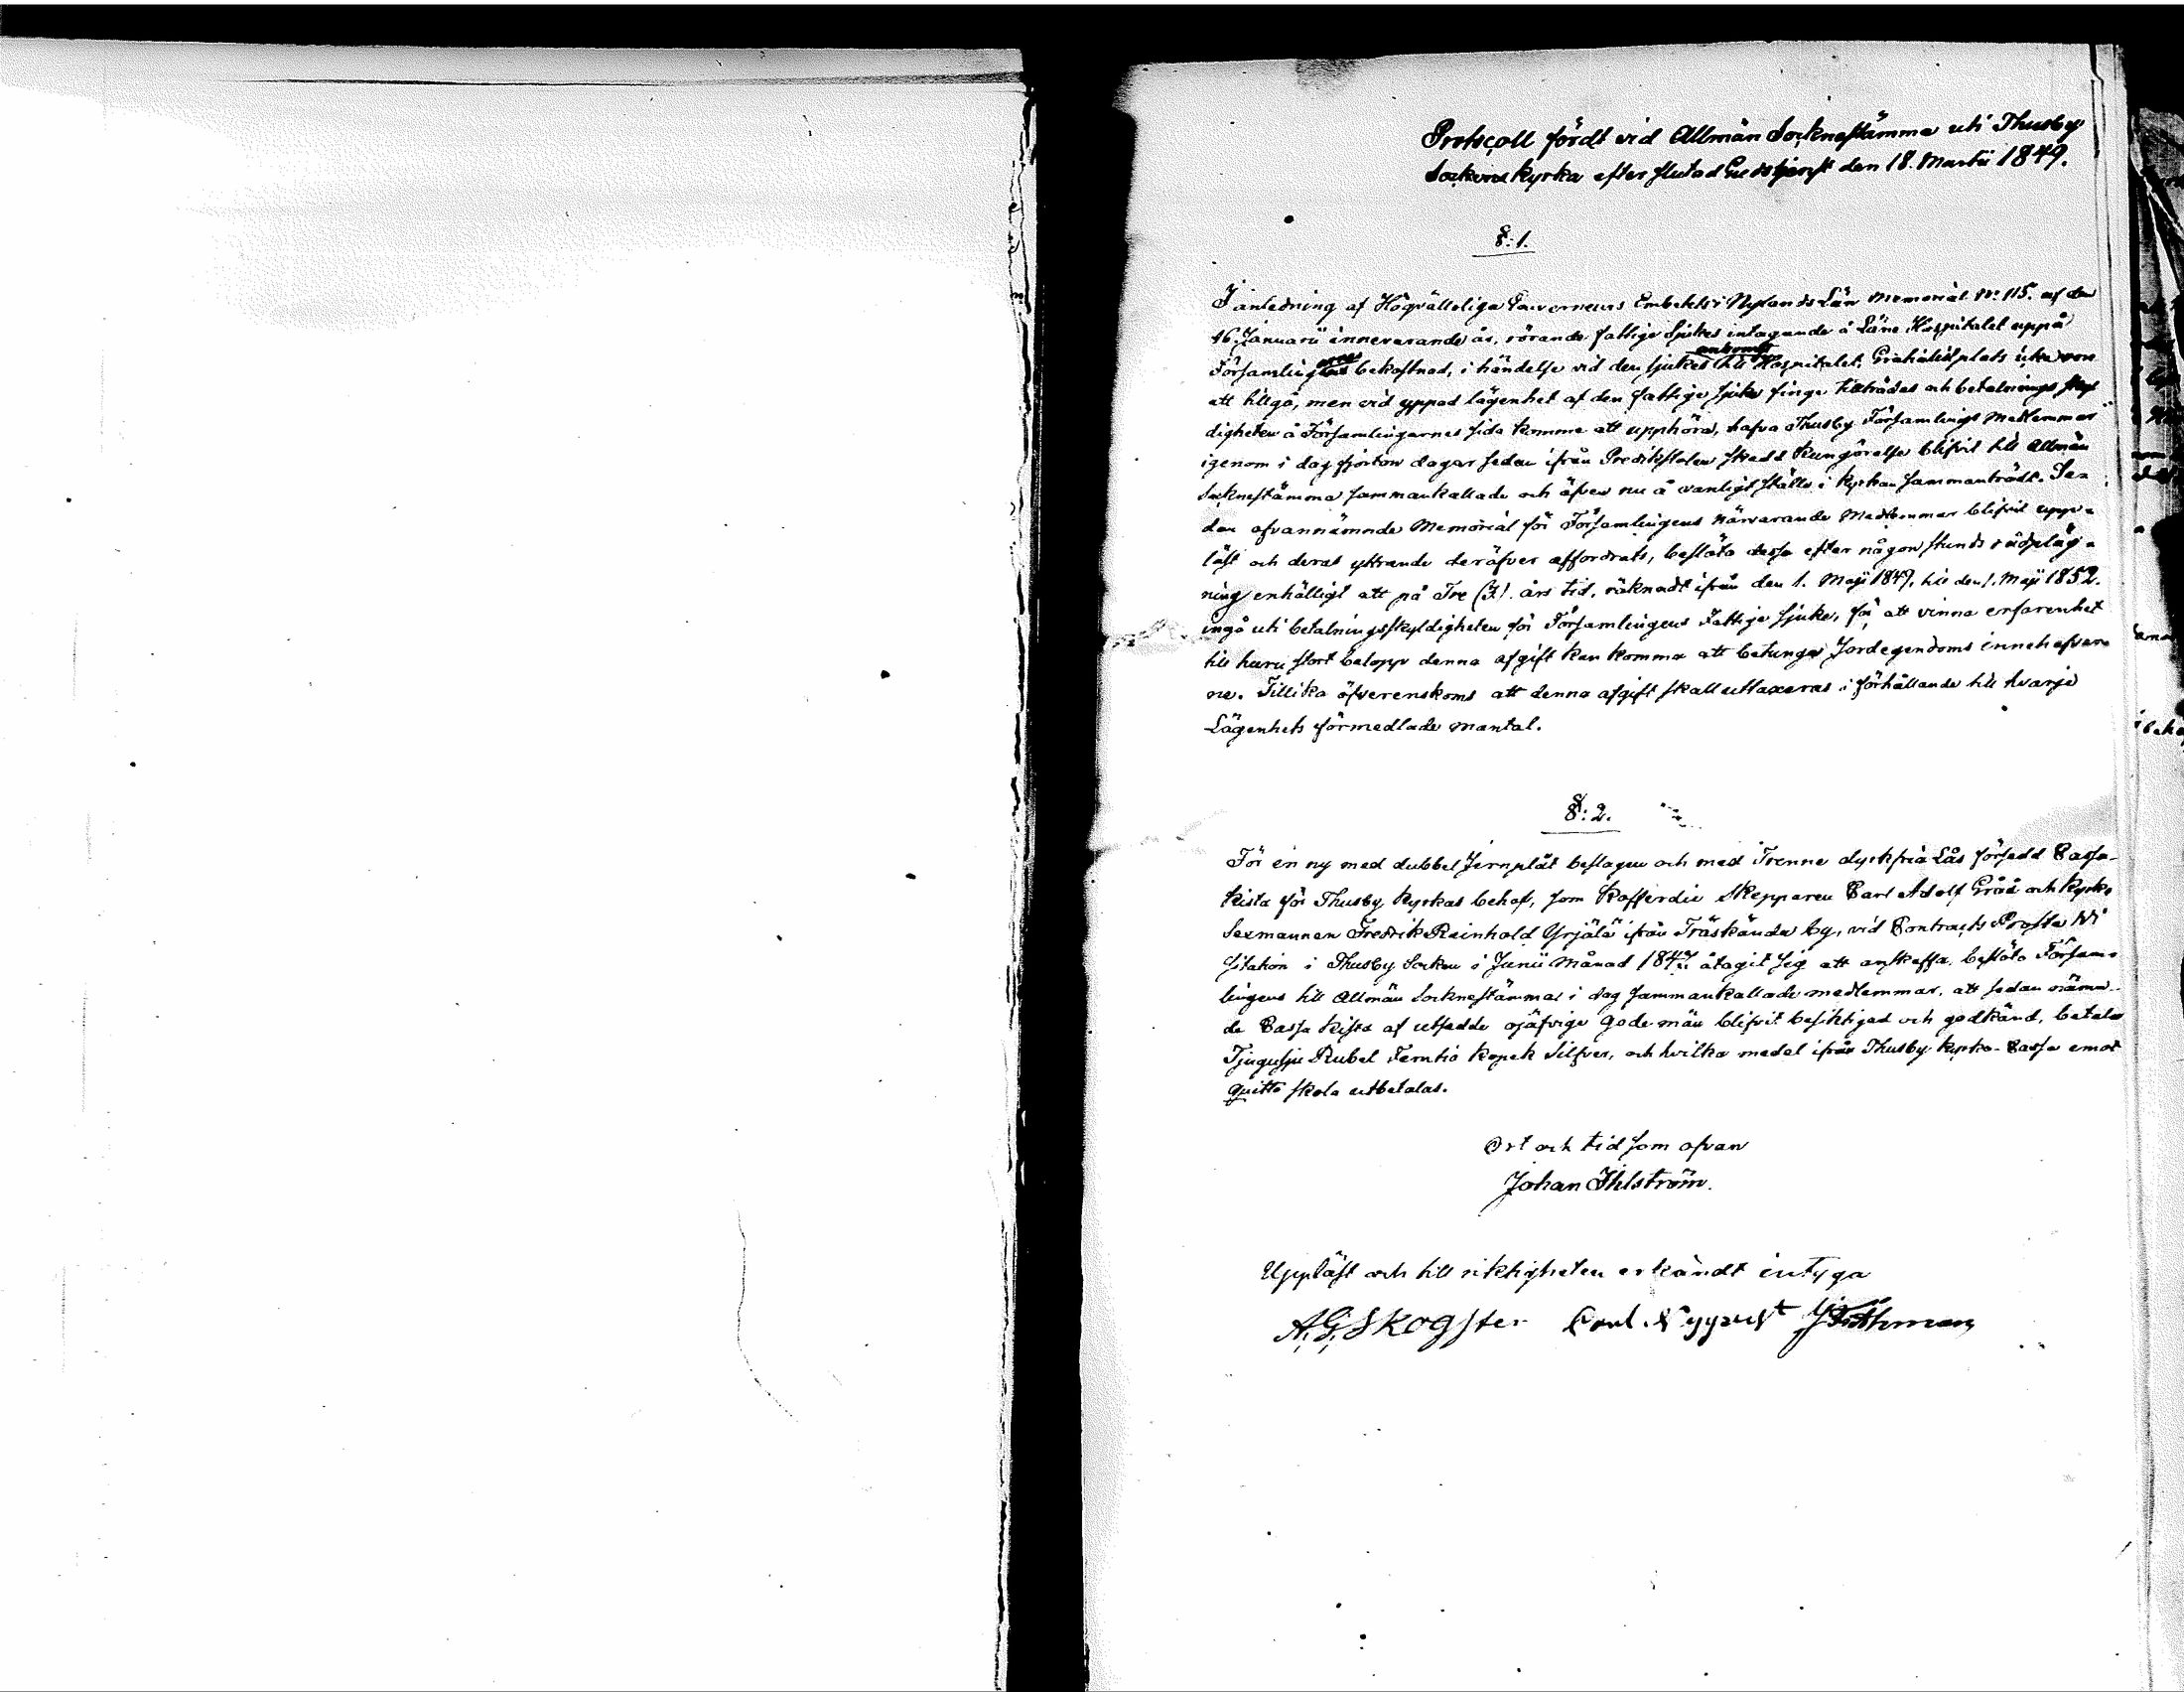 Protocoll fördt vid Allmän Sockneſtämma uti Thusby
Sockens kyrka efter ſlutad Gudstjenſt den 18. Martii 1849.
§: 1.
I anledning af Högvälloliga Gouverneurs Embetets i Nylands Län Memorial N: 115. af den
16. Januarii innevarande år, rörande fattige Sjukes intagande å Läne Hospitalet uppå
Församlingarnes bekoſtnad, i händelſe vid den ſjukes ankomſt till Hospitalet, Gratialiſtplats icke vore
att tillgå, men vid yppad lägenhet af den fattige ſjuke finge tillträdas och betalnings ſkyl
digheten å Förſamlingarnes ſida komme att upphöra, hafva Thusby Förſamlings Medlemmar
igenom i dag fjorton dagar ſedan ifrån Predikſtolen ſkedd Kungörelſe blifvit till Allmän
Sockneſtämma ſammankallade och äfven nu å vanligt ſtälle i Kyrkan ſammanträdt. Se„
dan ofvannämnde Memorial för Förſamlingens närvarande Medlemmar blifvit upp„
läſt och deras yttrande deröfver affordrats, beſlöto deſſa efter någon ſtunds rådpläg„
ning enhälligt att på Tre (3). års tid, räknadt ifrån den 1. Maji 1849. till den 1. Maji 1852.
ingå uti betalningsſkyldigheten för Förſamlingens Fattige ſjuke, för att vinna erfarenhet
till huru ſtort belopp denna afgift kan komma att betunga Jordegendoms innehafvar„
ne. Tillika öfverenskoms att denna afgift ſkall uttaxeras i förhållande till hvarje
Lägenhets förmedlade mantal.
§: 2.
För en ny med dubbel Jernplåt beſlagen och med Trenne dyrkfria Lås förſedd Caſſa„
kista för Thusby Kyrkas behof, ſom Kofferdie Skepparen Carl Adolf Gråå och Kyrko
Sexmannen Fredrik Reinhold Yrjälä ifrån Träskända by, vid Contracts Proſte Wi
ſitation i Thusby Socken i Junii Månad 1847. åtagit ſig att anſkaffa, beſlöto Förſam„
lingens till Allmän Sockneſtämma i dag ſammankallade medlemmar, att ſedan nämn„
de Caſſa Kiſta af utſedde ojäfvige gode män blifvit beſiktigad och godkänd, betala
Tjuguſju Rubel Femtio Kopek Silfver, och hvilka medel ifrån Thusby Kyrko-Caſſa emot
quitto ſkola utbetalas.
Ort och tid ſom ofvan
Johan Ihlström.
Uppläſt och till riktigheten erkändt intyga
A. G. Skogſter Carl Nyqviſt